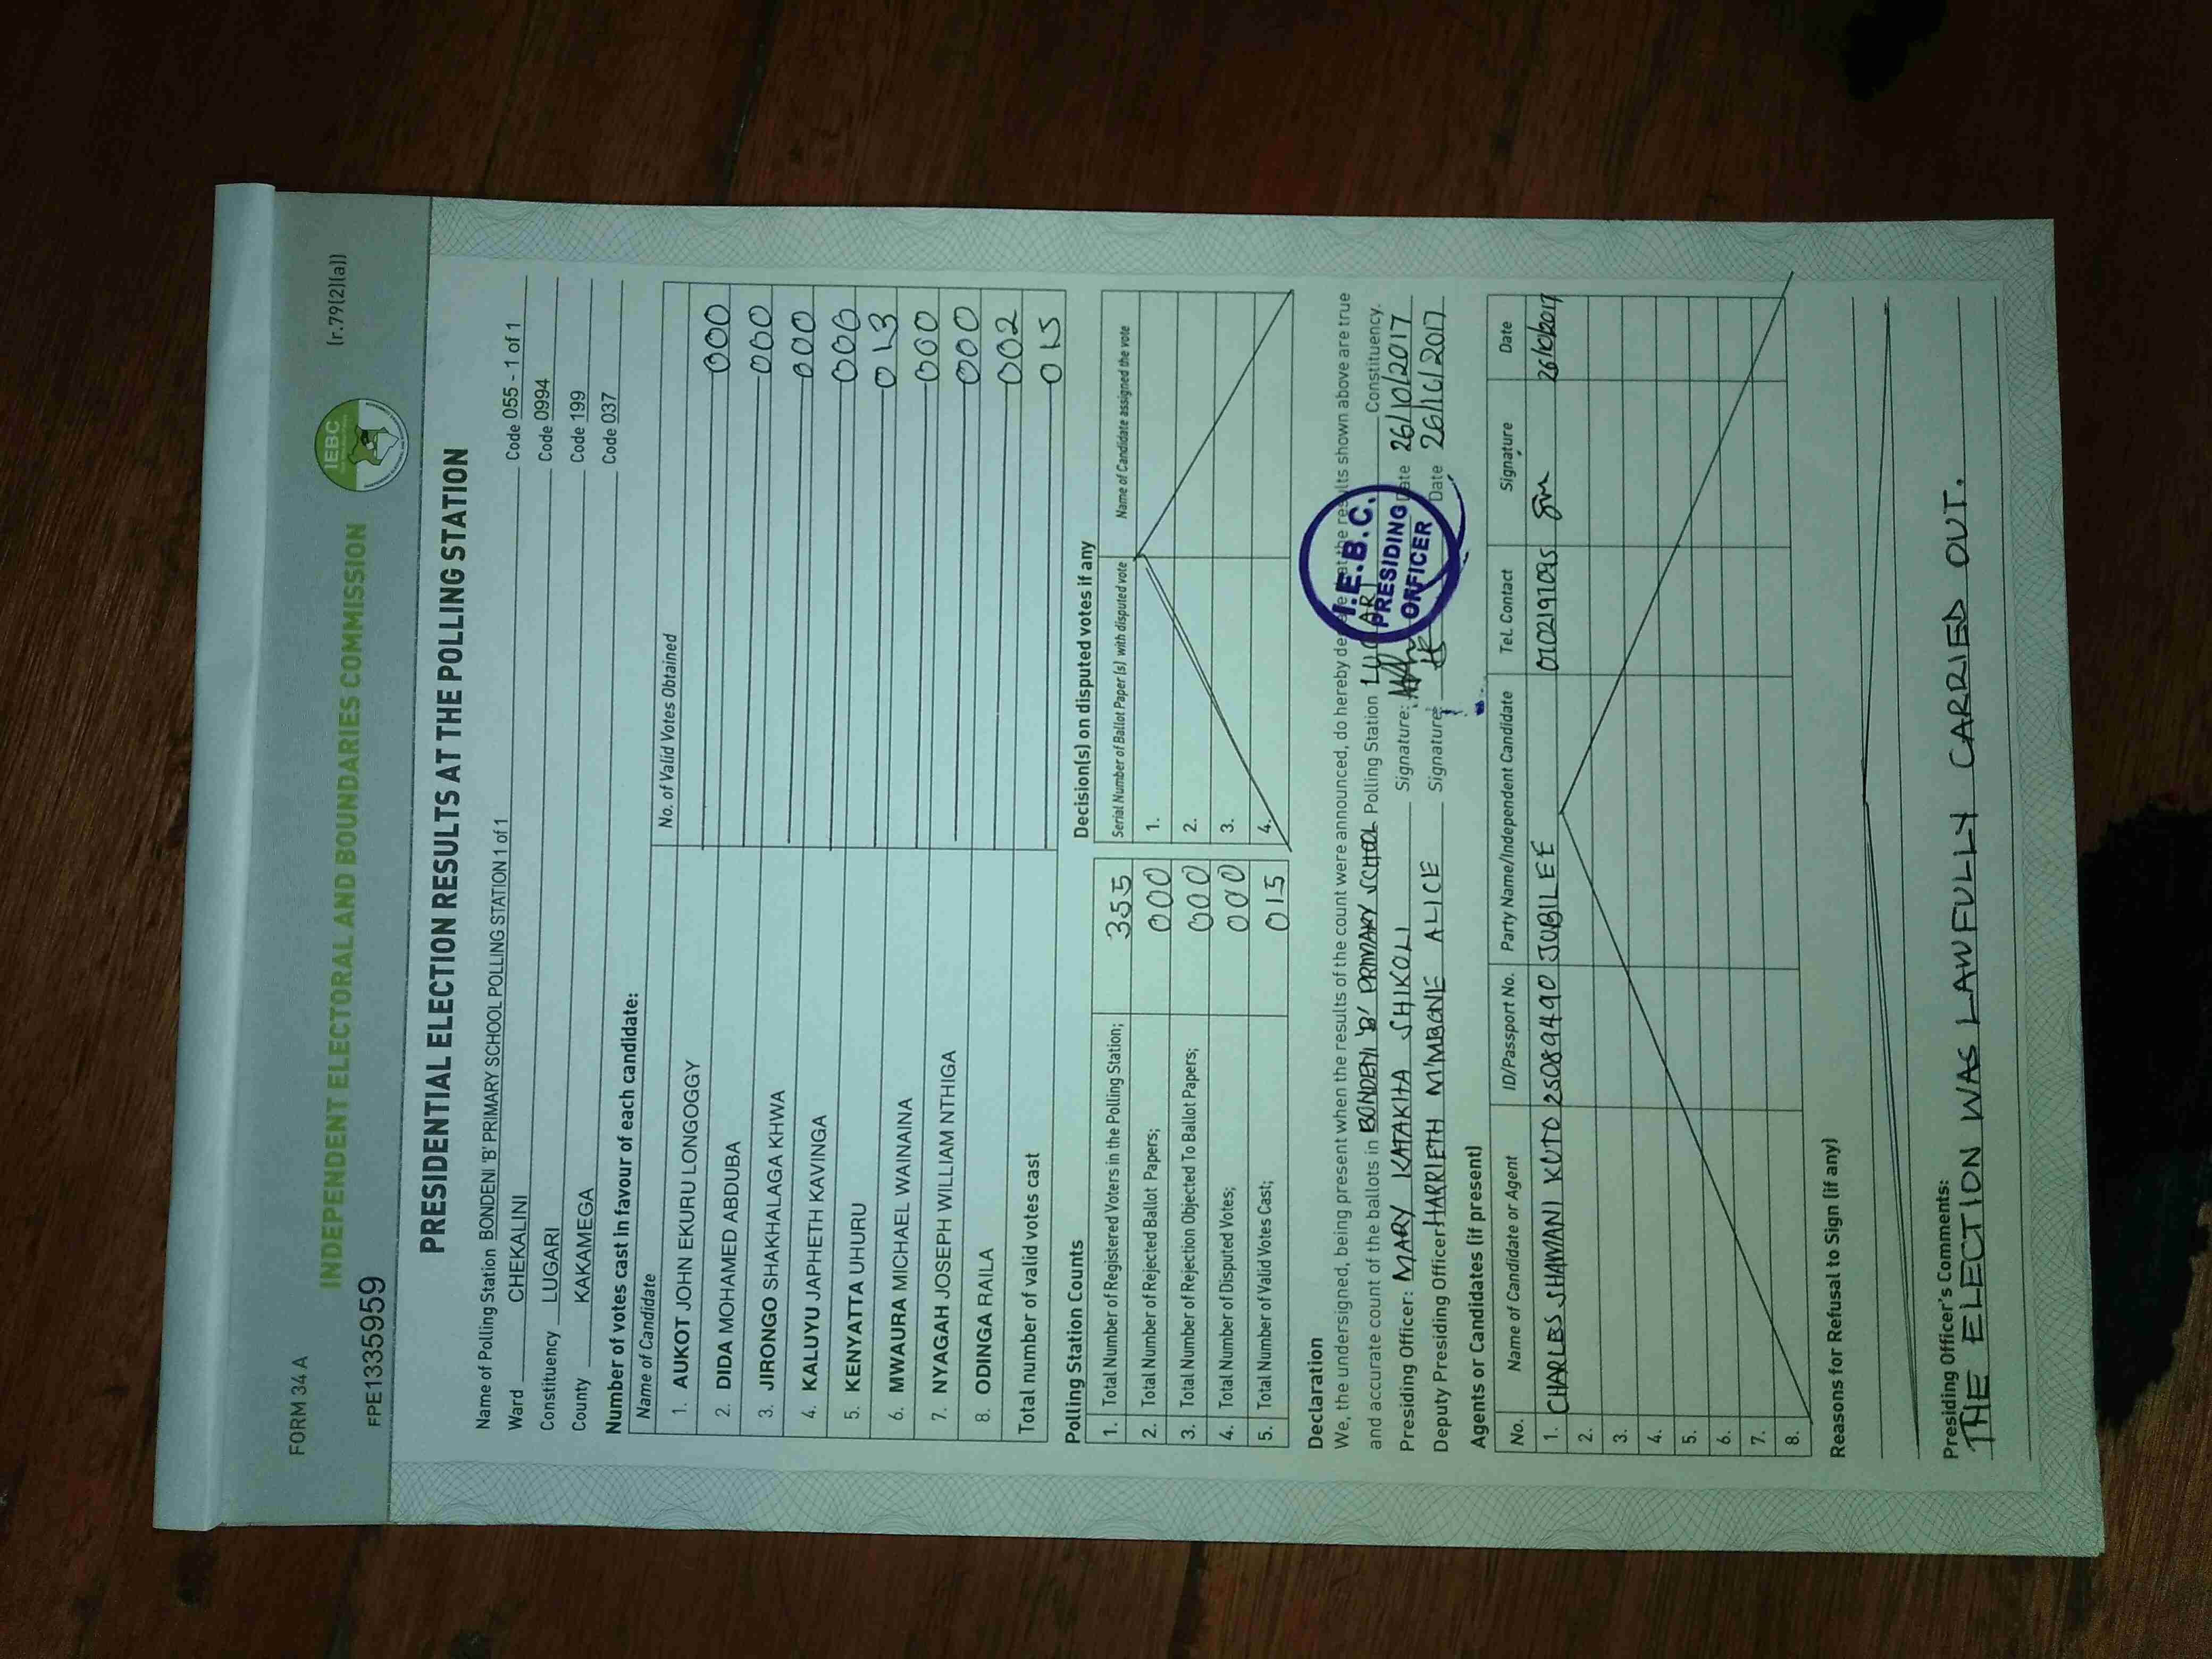 FORM 34 A
(r.79(2)(a))
INDEPENDENT ELECTORAL AND BOUNDARIES COMMISSION
IEBC
FPE1335959
PRESIDENTIAL ELECTION RESULTS AT THE POLLING STATION
Name of Polling Station BONDENI 'B' PRIMARY SCHOOL POLLING STATION 1 of 1 Code 055 - 1 of 1
Ward CHEKALINI Code 0994
Constituency LUGARI Code 199
County KAKAMEGA Code 037
Number of votes cast in favour of each candidate:
Name of Candidate No. of Valid Votes Obtained
1. AUKOT JOHN EKURU LONGOGGY 000
2. DIDA MOHAMED ABDUBA 000
3. JIRONGO SHAKHALAGA KHWA 000
4. KALUYU JAPHETH KAVINGA 000
5. KENYATTA UHURU 013
6. MWAURA MICHAEL WAINAINA 000
7. NYAGAH JOSEPH WILLIAM NTHIGA 000
8. ODINGA RAILA 002
Total number of valid votes cast 015
Polling Station Counts
1. Total Number of Registered Voters in the Polling Station; 355
2. Total Number of Rejected Ballot Papers; 000
3. Total Number of Rejection Objected To Ballot Papers; 000
4. Total Number of Disputed Votes; 000
5. Total Number of Valid Votes Cast; 015
Decision(s) on disputed votes if any
Serial Number of Ballot Paper (s) with disputed vote Name of Candidate assigned the vote
1.
2.
3.
4.
Declaration
We, the undersigned, being present when the results of the count were announced, do hereby declare that the results shown above are true
and accurate count of the ballots in BONDENI 'B' PRIMARY SCHOOL Polling Station LUGARI Constituency.
Presiding Officer: MARY KATAKITA SHIKOLI Signature: Date 26/10/2017
Deputy Presiding Officer: HARRIETH M'MBONE ALICE Signature: Date 26/10/2017
I.E.B.C.
PRESIDING
OFFICER
Agents or Candidates (if present)
No. Name of Candidate or Agent ID/Passport No. Party Name/Independent Candidate Tel. Contact Signature Date
1. CHARLES SHAMINI KUTO 25089490 JUBILEE 0702191095 26/10/2017
2.
3.
4.
5.
6.
7.
8.
Reasons for Refusal to Sign (if any)
Presiding Officer's Comments:
THE ELECTION WAS LAWFULLY CARRIED OUT.